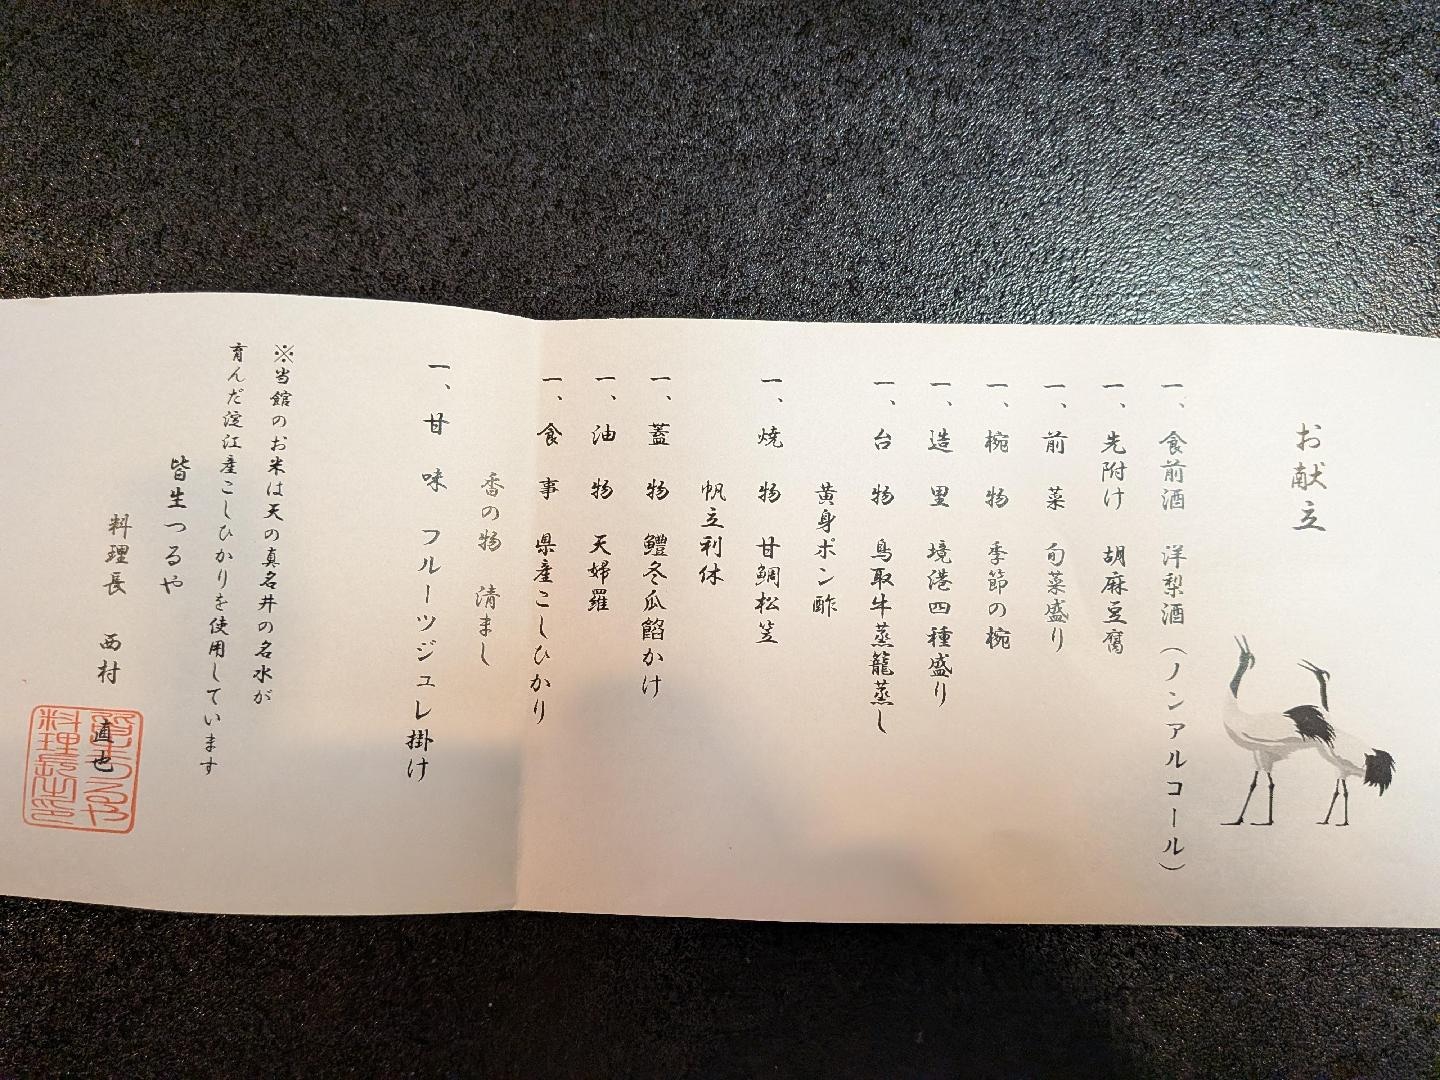 お献立
一、食前酒　洋梨酒（ノンアルコール）
一、先附け　胡麻豆腐
一、前　菜　旬菜盛り
一、椀　物　季節の椀
一、造　里　境港四種盛り
一、台　物　鳥取牛蒸籠蒸し
黄身ポン酢
一、焼　物　甘鯛松笠
帆立利休
一、蓋　物　鱧冬瓜餡かけ
一、油　物　天婦羅
一、食　事　県産こしひかり
香の物　清まし
一、甘　味　フルーツジュレ掛け
※当館のお米は天の真名井の名水が
育んだ淀江産こしひかりを使用しています
皆生つるや
料理長　西村　直也
皆生つるや
料理長之印